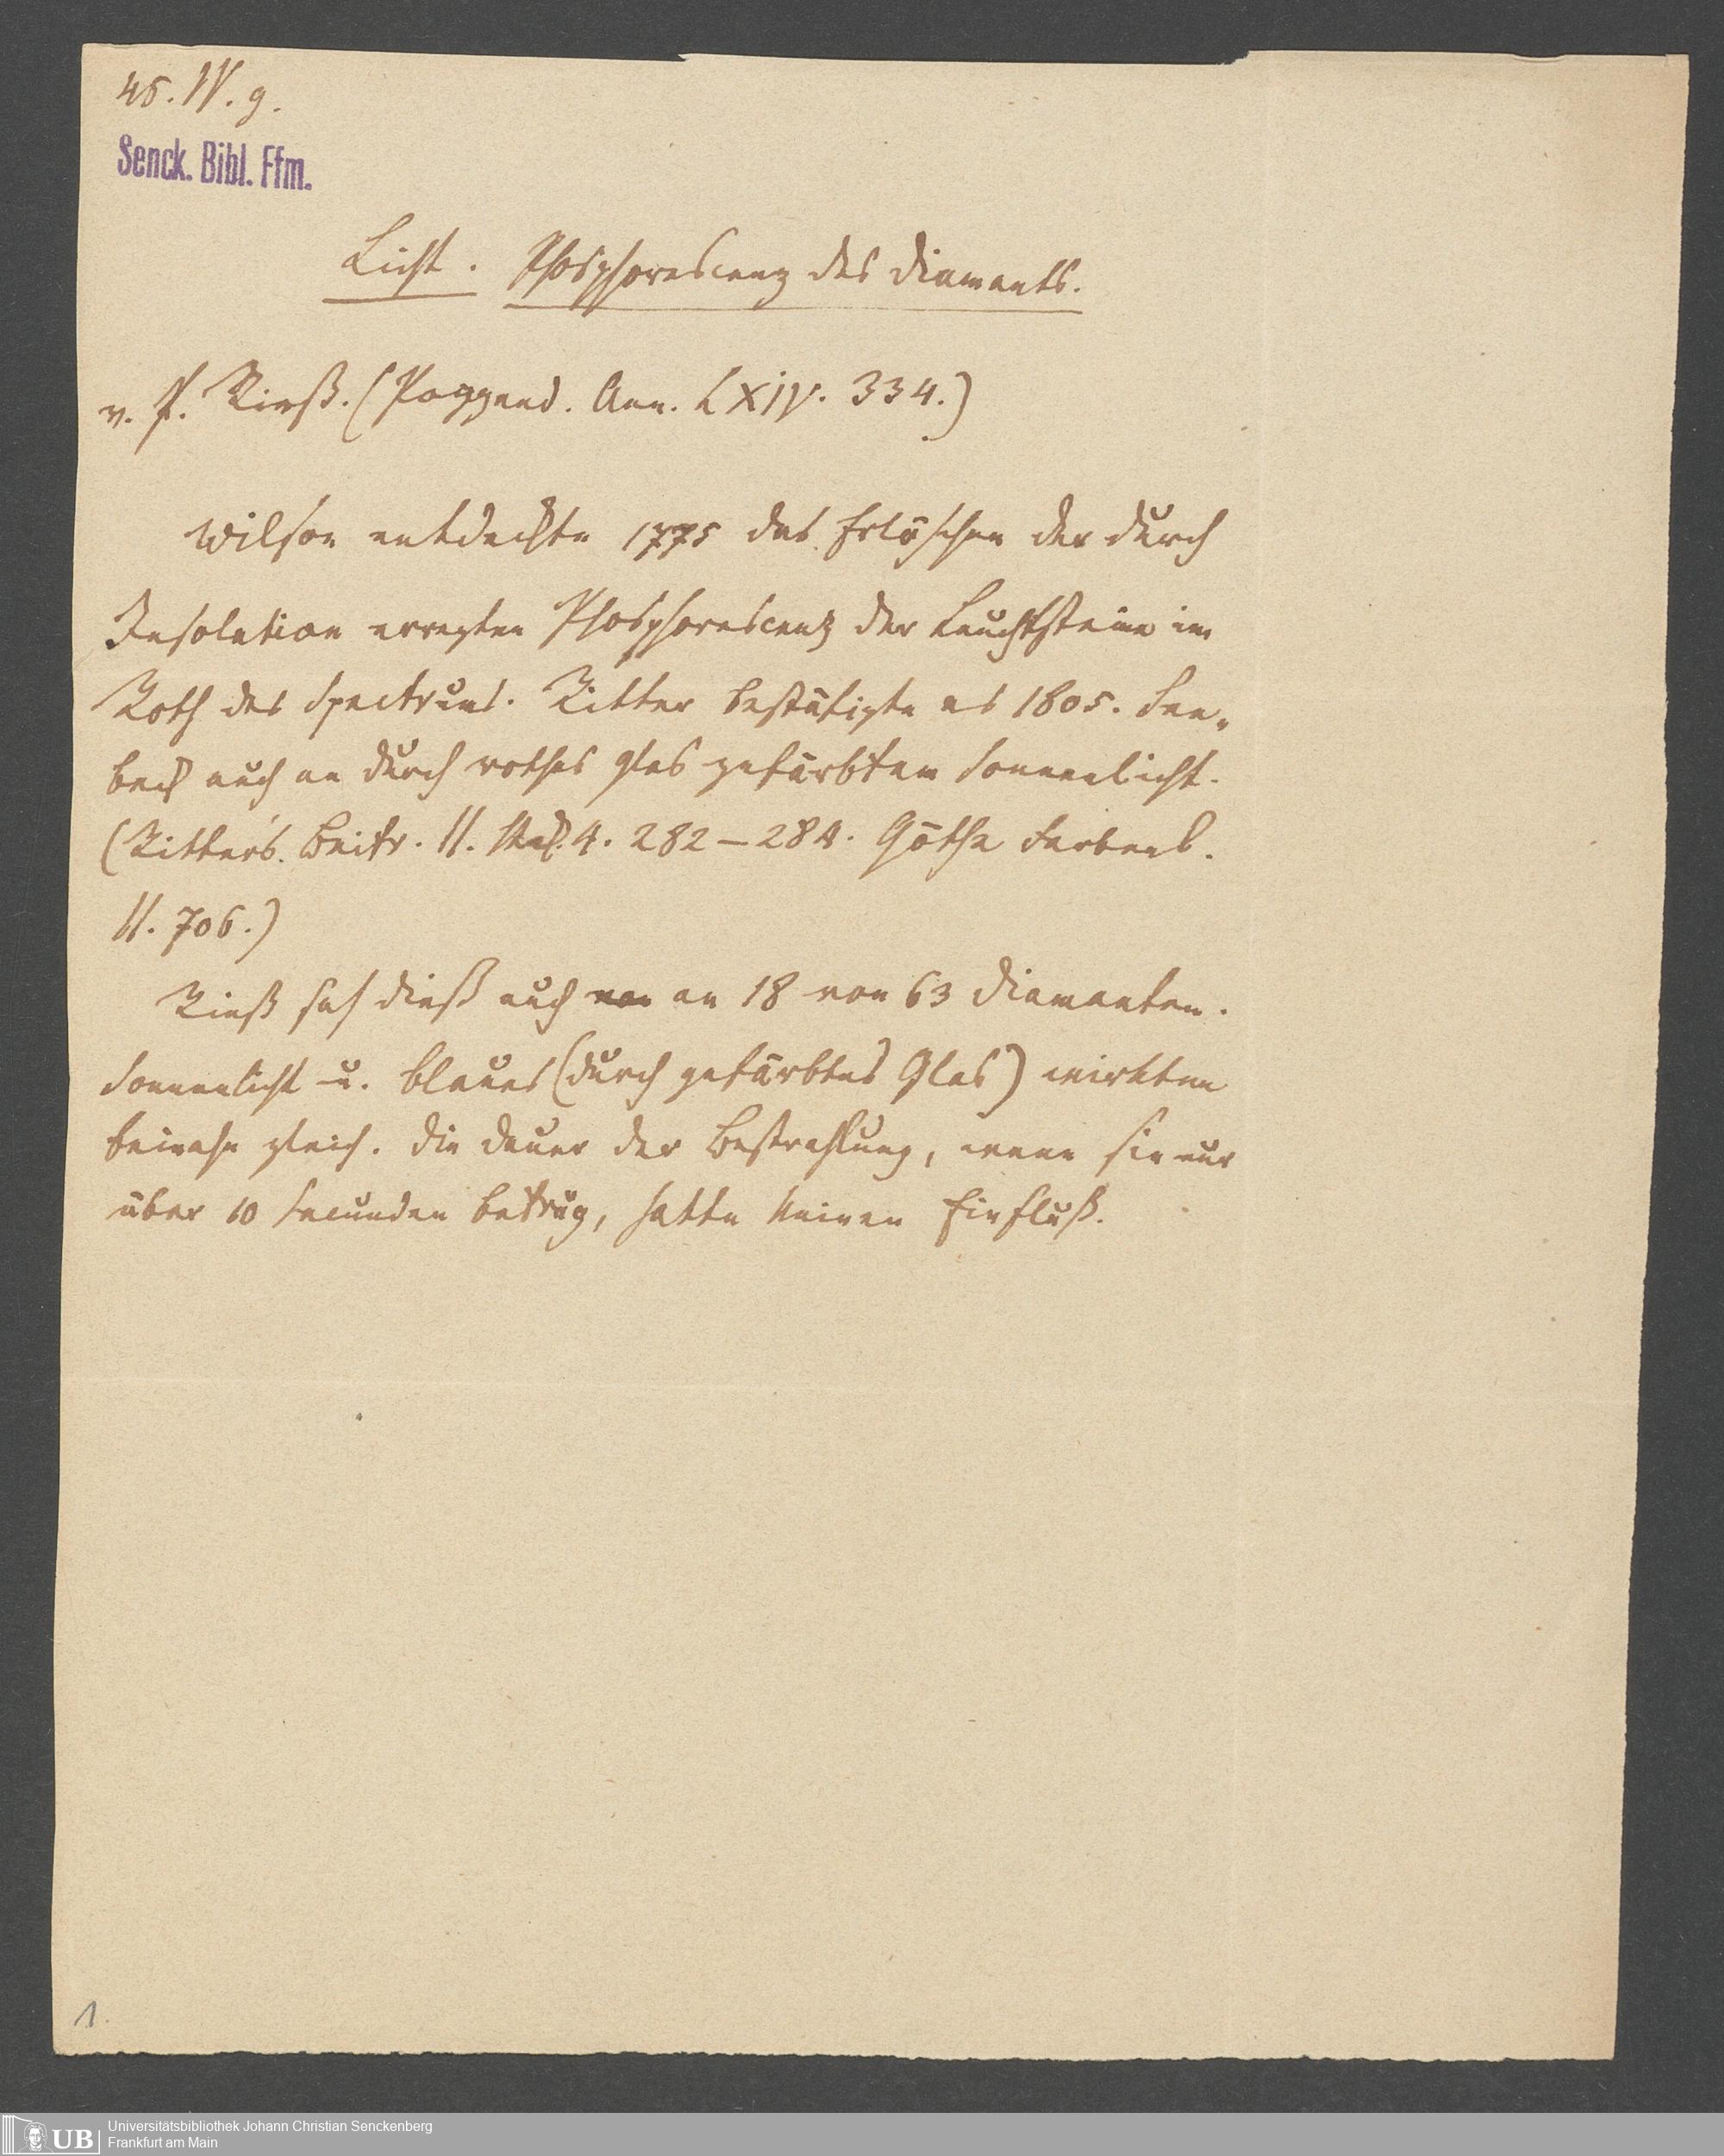 45. IV. g.
Senck. Bibl. Ffm.
Licht. Phosphorescenz des Diamants.
v. P. Rieß. (Poggend. Ann. LXIV. 334.)
Wilson entdeckte 1775 das Erlöschen der durch
Insolation erregten Phosphorescenz der Leuchtsteine im
Roth des Spectrums. Ritter bestätigte es 1805. See-
beck auch an durch rothes Glas gefärbtem Sonnenlicht.
(Ritters. Beitr. II. 4. 282–284. Göthe Farbenl.
II. 706.)
Rieß sah dieß auch von an 18 von 63 Diamanten.
Sonnenlicht u. blaues (durch gefärbtes Glas) wirkten
beinahe gleich. Die Dauer der Bestrahlung, wenn sie nur
über 10 Secunden betrug, hatte keinen Einfluß.
1.
UB
Universitätsbibliothek Johann Christian Senckenberg
Frankfurt am Main